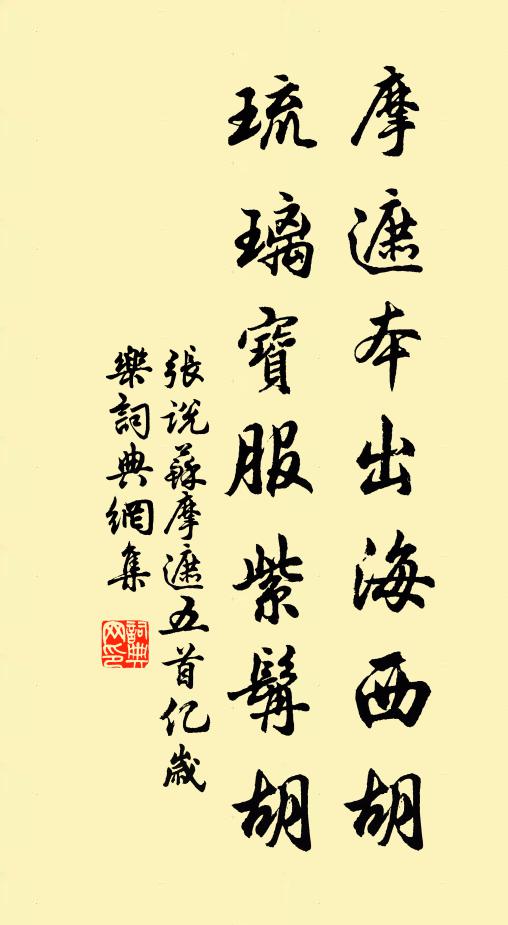 摩遮本出海西胡
琉璃寶服紫髯胡
張説蘇摩遮五首亿歲
樂詞典網集
詞典网印